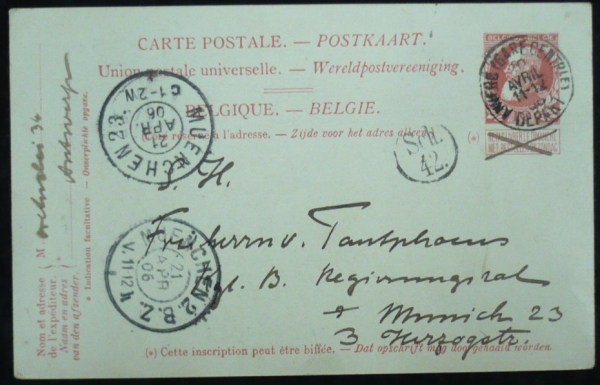 CARTE POSTALE. — POSTKAART.
Union postale universelle. — Wereldpostvereeniging.
BELGIQUE. — BELGIE.
(Côté réservé à l'adresse. — Zijde voor het adres alleen.)
BELGIQUE
ANVERS (GARE CENTRALE)
20
AVRIL
11-12
DÉPART
(*)
MUENCHEN 23.
21
APR
06
C1-2N
Sch.
42.
S. H.
Freiherrn v. Tautphoeus
Kgl. B. Regierungsrat
Munich 23
3 Herzogstr.
MUENCHEN 2 B.Z.
21
APR
06
V. 11-12
(*) Cette inscription peut être biffée. — Dat opschrift mag doorgehaald worden.
Nom et adresse
de l'expéditeur
Naam en adres
van den afzender.
M
34
Antwerp
* Indication facultative — Onverplichte opgave.